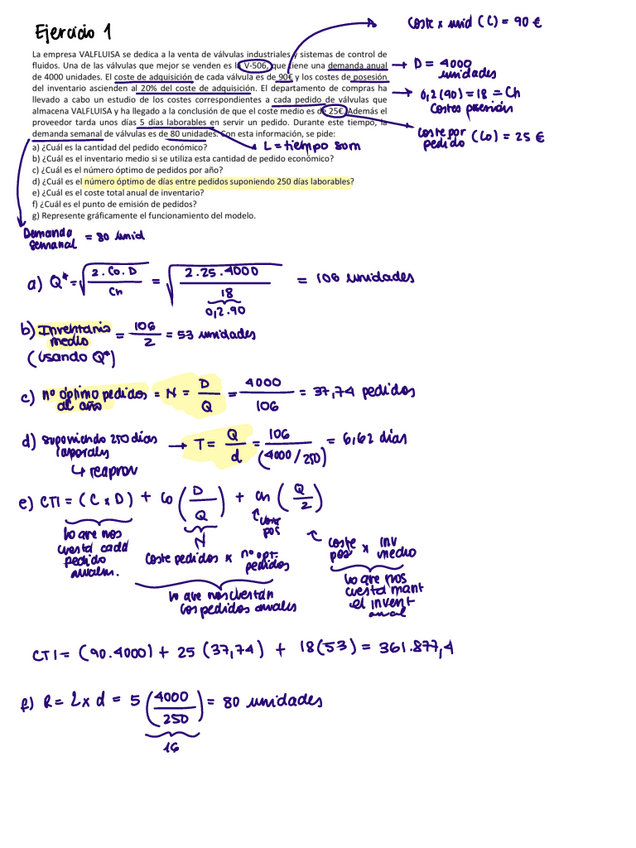 Ejercicio 1
Coste x unid (C) = 90 €
La empresa VALFLUISA se dedica a la venta de válvulas industriales y sistemas de control de
fluidos. Una de las válvulas que mejor se venden es la V-506, que tiene una demanda anual
de 4000 unidades. El coste de adquisición de cada válvula es de 90€ y los costes de posesión
del inventario ascienden al 20% del coste de adquisición. El departamento de compras ha
llevado a cabo un estudio de los costes correspondientes a cada pedido de válvulas que
almacena VALFLUISA y ha llegado a la conclusión de que el coste medio es de 25€. Además el
proveedor tarda unos días 5 días laborables en servir un pedido. Durante este tiempo, la
demanda semanal de válvulas es de 80 unidades. Con esta información, se pide:
→ D = 4000 unidades
→ 0,2(90) = 18 = Ch
Costes posesión
Coste por pedido (Co) = 25 €
L = tiempo sum
a) ¿Cuál es la cantidad del pedido económico?
b) ¿Cuál es el inventario medio si se utiliza esta cantidad de pedido económico?
c) ¿Cuál es el número óptimo de pedidos por año?
d) ¿Cuál es el número óptimo de días entre pedidos suponiendo 250 días laborables?
e) ¿Cuál es el coste total anual de inventario?
f) ¿Cuál es el punto de emisión de pedidos?
g) Represente gráficamente el funcionamiento del modelo.
Demanda semanal = 80 unid
a) Q* = √(2.Co.D / Ch) = √(2.25.4000 / 18) = 106 unidades
0,2.90
b) Inventario medio = 106 / 2 = 53 unidades
(usando Q*)
c) nº óptimo pedidos al año = N = D / Q = 4000 / 106 = 37,74 pedidos
d) suponiendo 250 días laborales → T = Q / d = 106 / (4000/250) = 6,62 días
↳ reaprov
e) CTI = (C x D) + Co (D / Q) + Ch (Q / 2)
lo que nos cuesta cada pedido anualm.
N
coste pos
Coste pedidos x nº opt. pedidos
coste pos x inv medio
lo que nos cuestan los pedidos anuales
lo que nos cuesta mant el invent anual
CTI = (90.4000) + 25 (37,74) + 18(53) = 361.877,4
f) R = L x d = 5 (4000 / 250) = 80 unidades
16